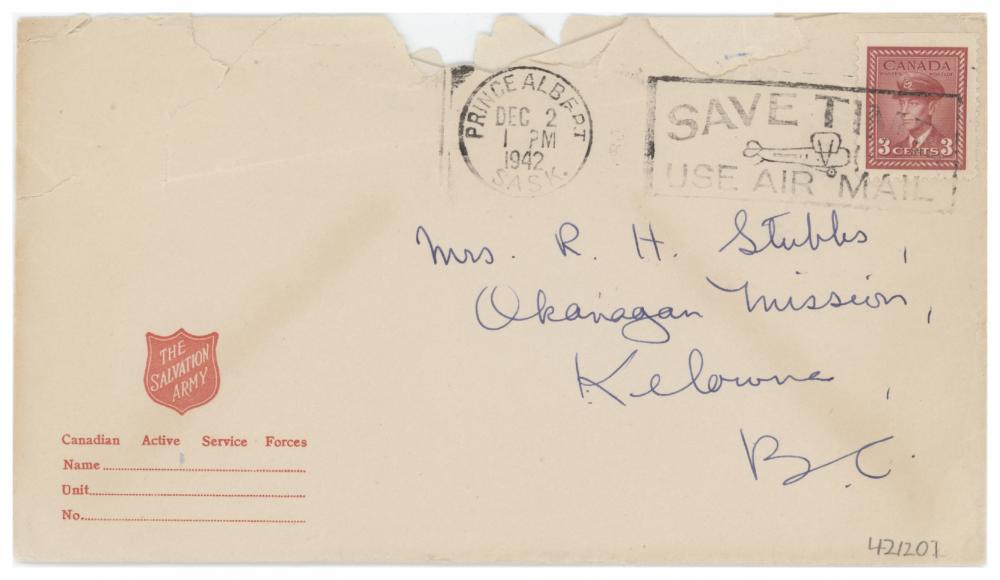 PRINCE ALBERT
DEC 2
1 PM
1942
SASK.
SAVE TI
USE AIR MAIL
CANADA
3 CENTS 3
Mrs. R. H. Stubbs,
Okanagan Mission,
Kelowna,
B.C.
THE
SALVATION
ARMY
Canadian Active Service Forces
Name
Unit
No.
421201